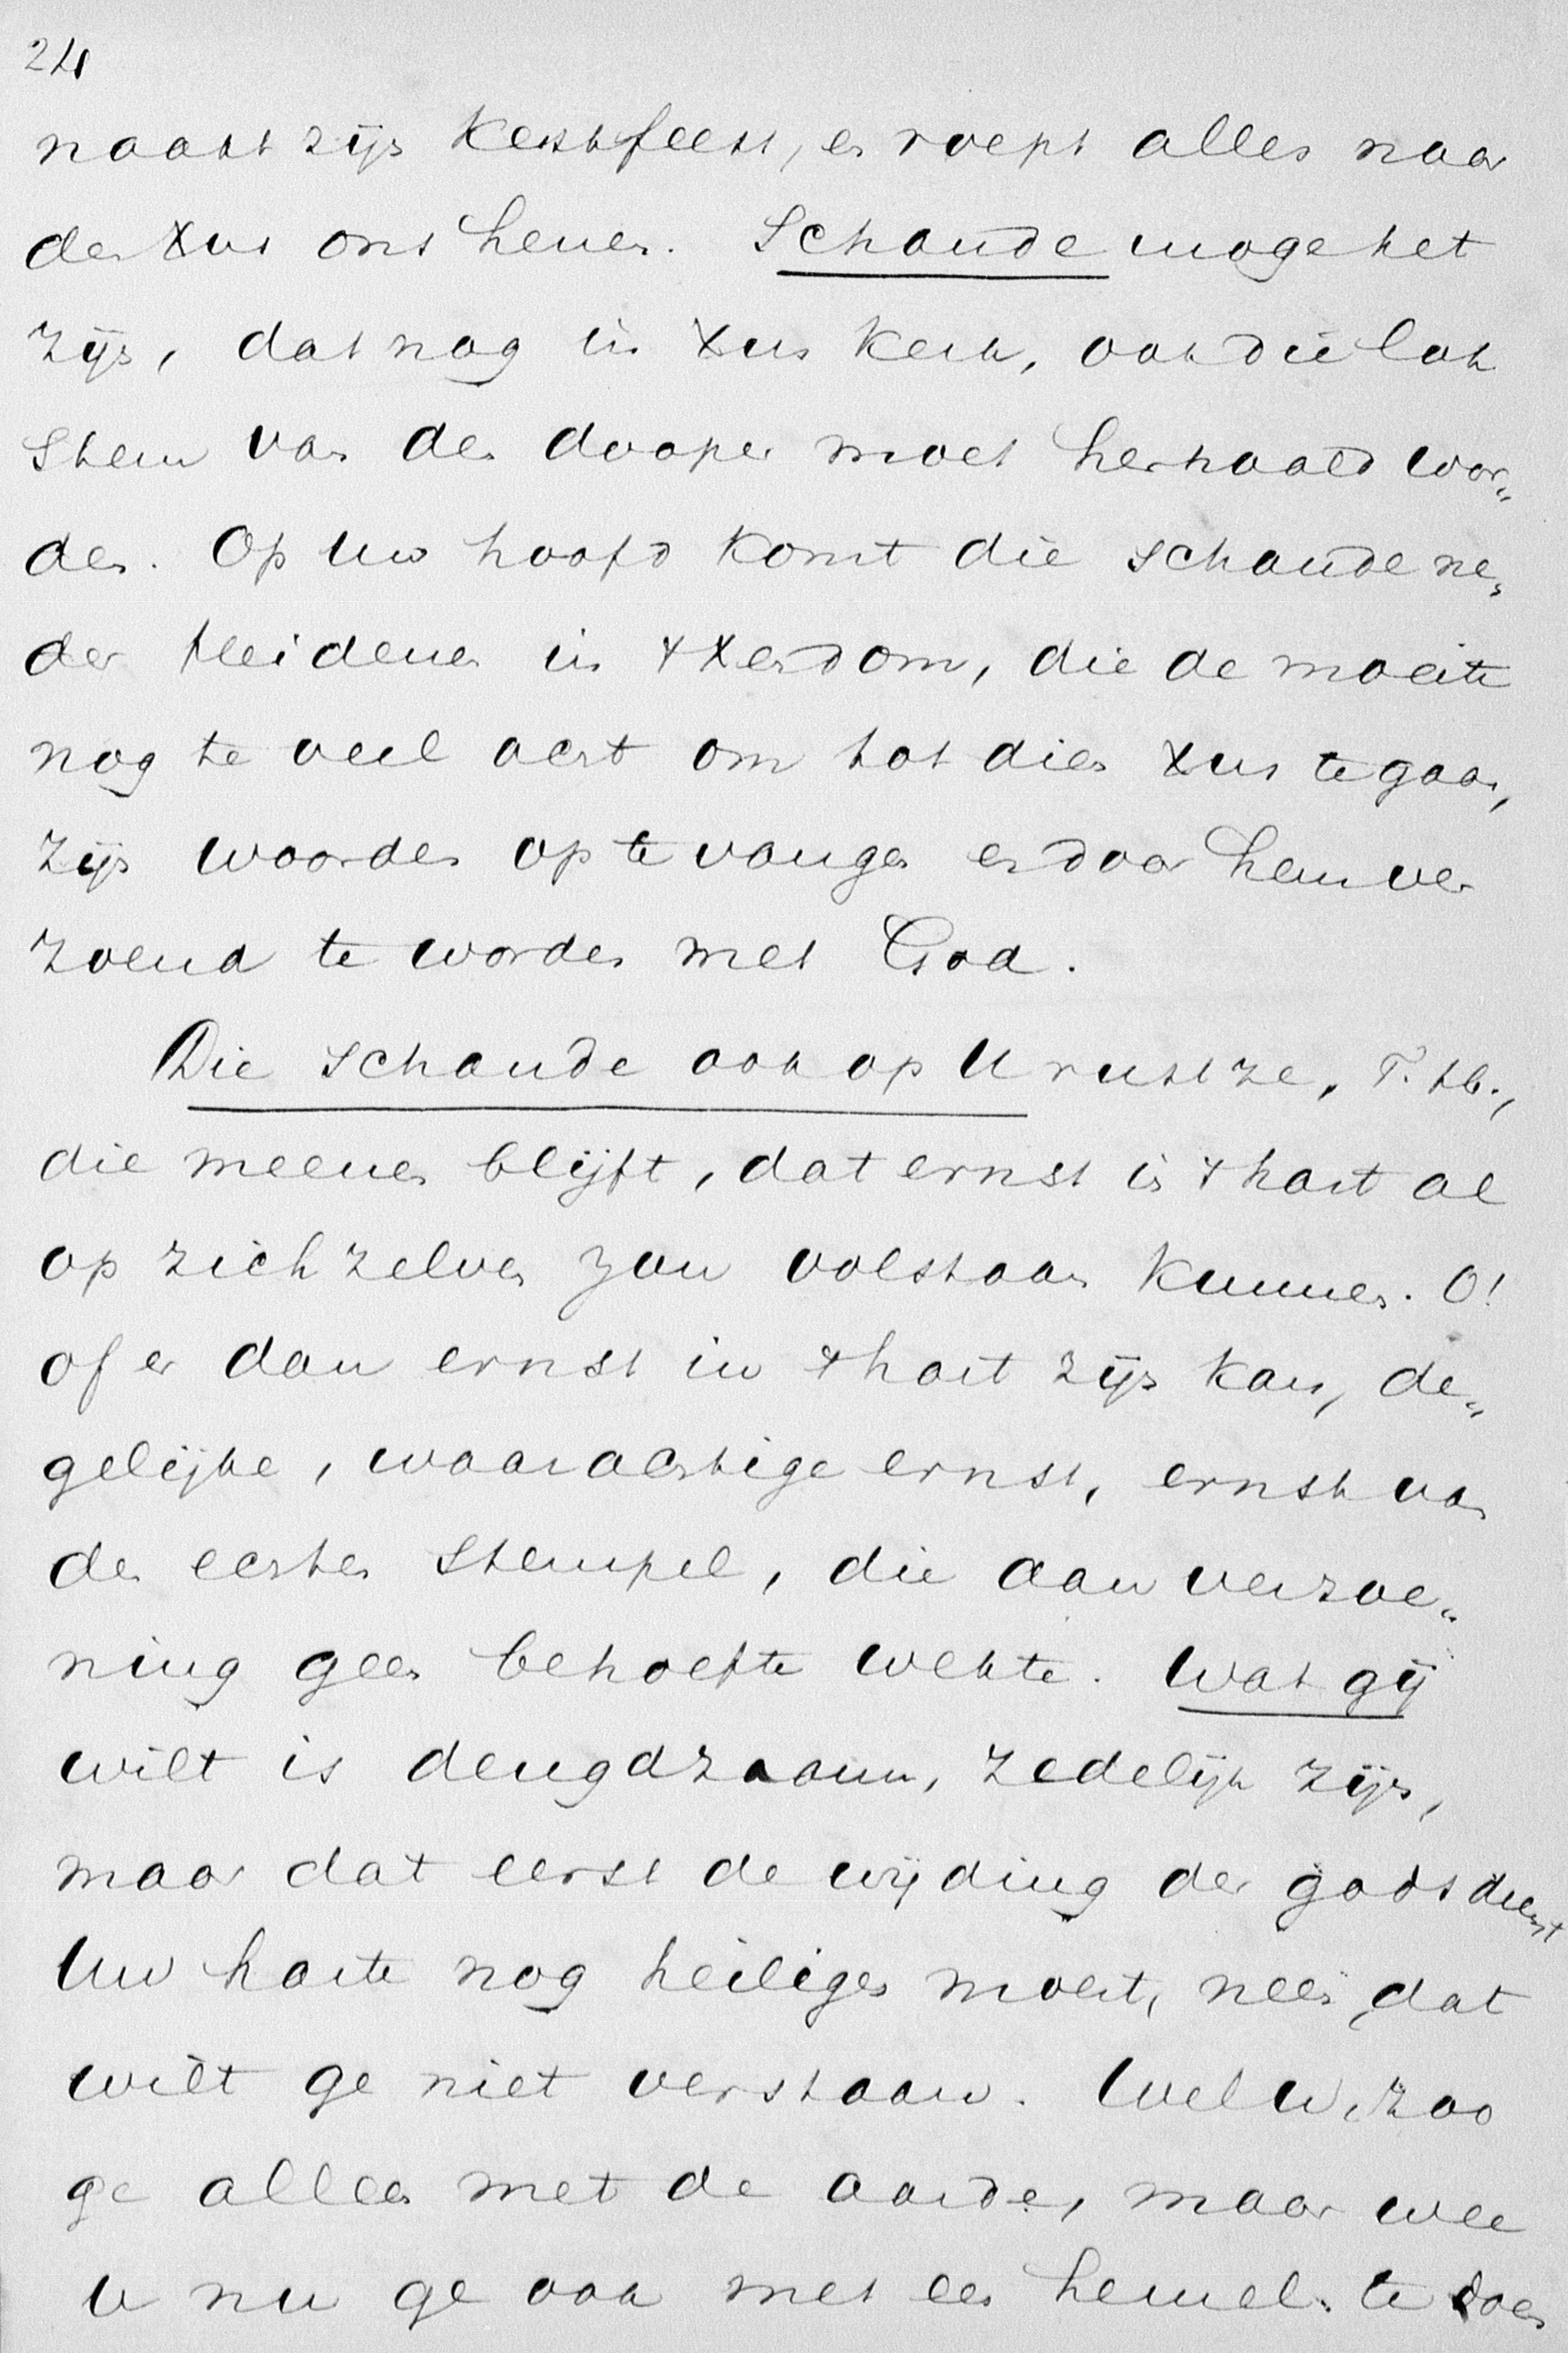 24
naast zijn kerstfeest, en roept alles naar
den Xus ons henen. Schande moge het
zijn, dat nog in Xus kerk, ook die lok
stem van den dooper moet herhaald wor„
den. Op uw hoofd komt die schande ne„
der Heidenen in 't Xendom, die de moeite
nog te veel acht om tot dien Xus te gaan,
zijn woorden op te vangen en door hem ver
zoend te worden met God.
Die schande ook op U rust ze, T. H.,
die meenen blijft, dat ernst in 't hart al
op zich zelven zou volstaan kunnen. O!
of er dan ernst in 't hart zijn kan, de„
gelijke, waarachtige ernst, ernst van
den eersten stempel, die aan verzoe„
ning geen behoefte wekte. Wat gij
wilt is deugdzaam, zedelijk zijn,
maar dat eerst de wijding der godsdienst
Uw harte nog heiligen moet, neen, dat
wilt ge niet verstaan. Wel U, zoo
ge alleen met de aarde, maar wee
U nu ge ook met een hemel te doen